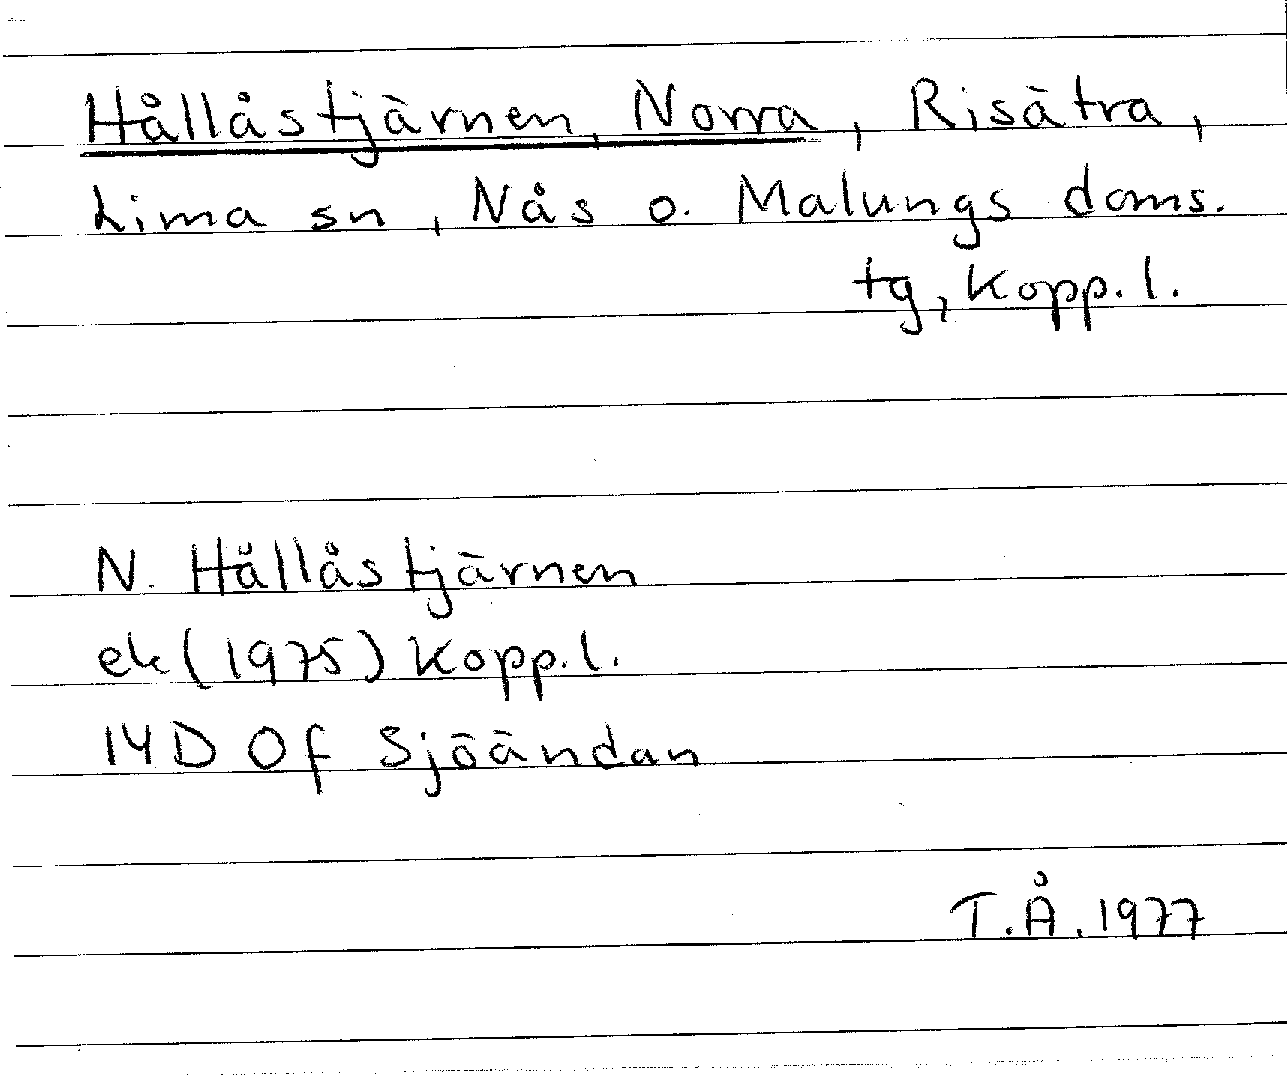 Hållåstjärnen, Norra, Risätra,
Lima sn, Nås o. Malungs doms.
tg, Kopp. l.
N. Hållåstjärnen
ek (1975) Kopp. l.
14D Of Sjöändan
T.Å. 1977